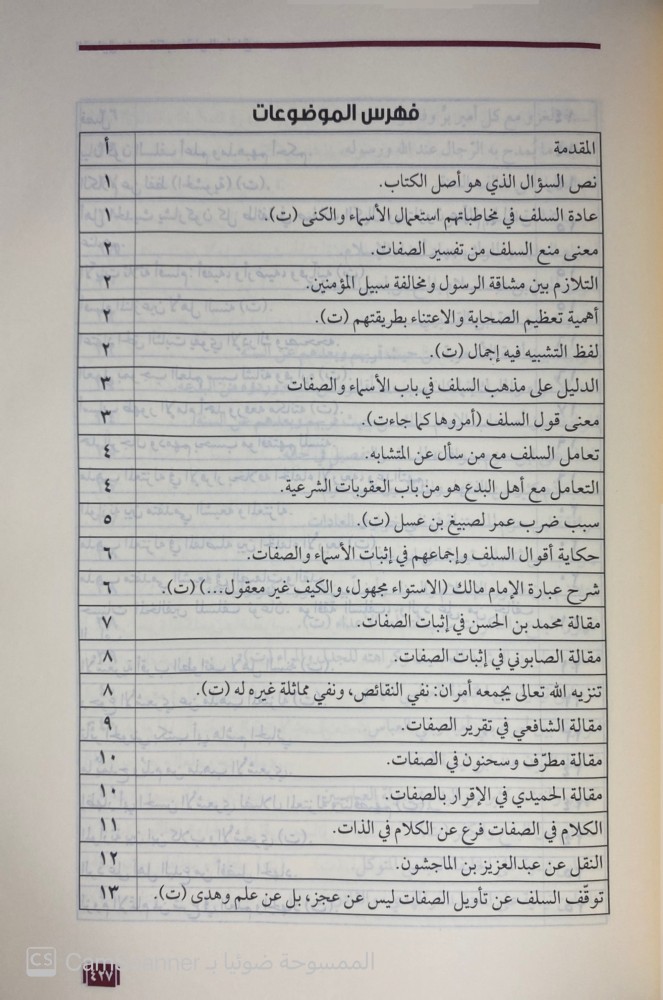 فهرس الموضوعات
المقدمة أ
نص السؤال الذي هو أصل الكتاب. ١
عادة السلف في مخاطباتهم استعمال الأسماء والكنى (ت). ١
معنى منع السلف من تفسير الصفات. ٢
التلازم بين مشاقة الرسول ومخالفة سبيل المؤمنين. ٢
أهمية تعظيم الصحابة والاعتناء بطريقتهم (ت). ٢
لفظ التشبيه فيه إجمال (ت). ٢
الدليل على مذهب السلف في باب الأسماء والصفات ٣
معنى قول السلف (أمروها كما جاءت). ٣
تعامل السلف مع من سأل عن المتشابه. ٤
التعامل مع أهل البدع هو من باب العقوبات الشرعية. ٤
سبب ضرب عمر لصبيغ بن عسل (ت). ٥
حكاية أقوال السلف وإجماعهم في إثبات الأسماء والصفات. ٦
شرح عبارة الإمام مالك (الاستواء مجهول، والكيف غير معقول...) (ت). ٦
مقالة محمد بن الحسن في إثبات الصفات. ٧
مقالة الصابوني في إثبات الصفات. ٨
تنزيه الله تعالى يجمعه أمران: نفي النقائص، ونفي مماثلة غيره له (ت). ٨
مقالة الشافعي في تقرير الصفات. ٩
مقالة مطرّف وسحنون في الصفات. ١٠
مقالة الحميدي في الإقرار بالصفات. ١٠
الكلام في الصفات فرع عن الكلام في الذات. ١١
النقل عن عبدالعزيز بن الماجشون. ١٢
توقّف السلف عن تأويل الصفات ليس عن عجز، بل عن علم وهدى (ت). ١٣
الممسوحة ضوئيا بـ CamScanner
CS
٤٢٧